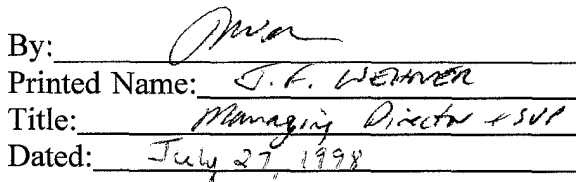 By:
Printed Name: J.F. WEHNER
Title: Managing Director + SVP
Dated: July 27, 1998